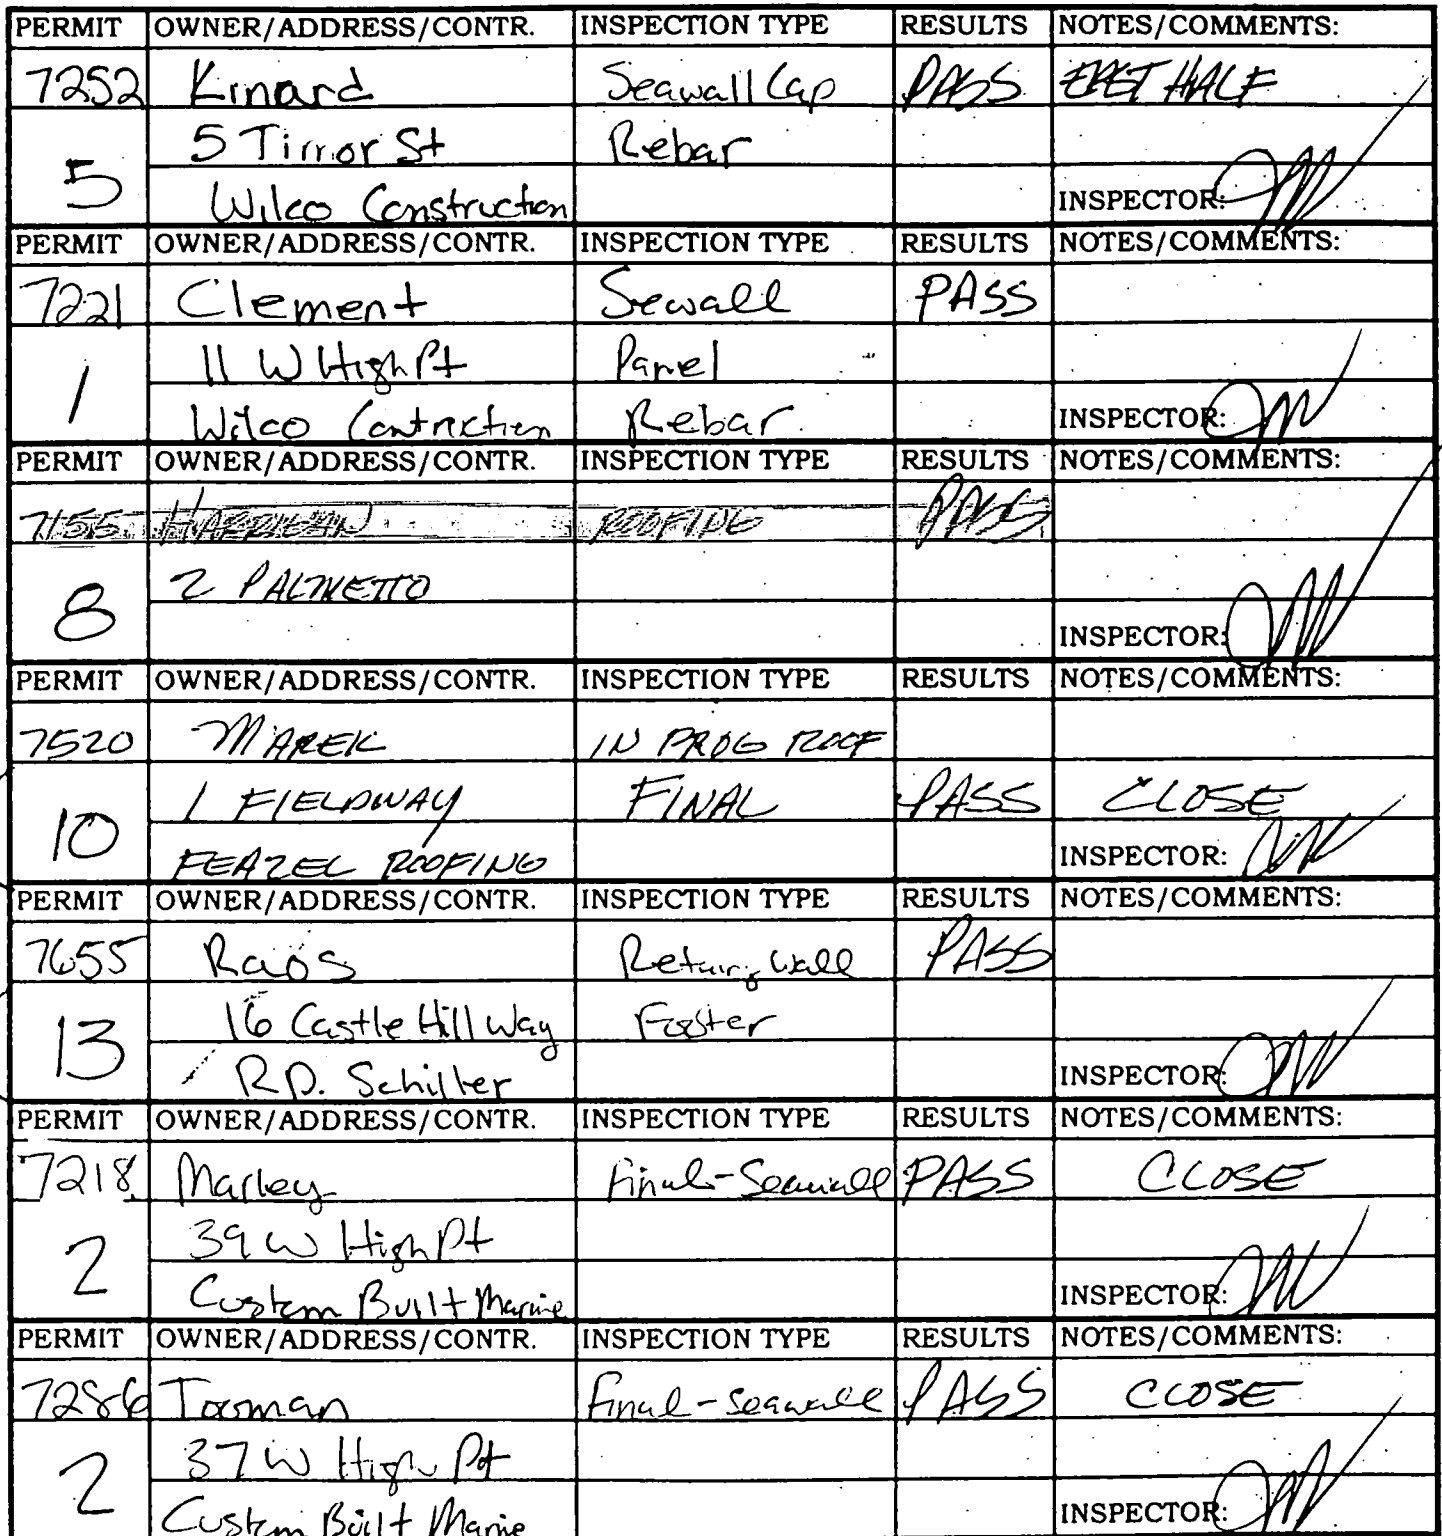 PERMIT OWNER/ADDRESS/CONTR. INSPECTION TYPE RESULTS NOTES/COMMENTS:
7252 Kinard Seawall Cap PASS EAST HALF
5 Tirror St Rebar
5 Wilco Construction INSPECTOR:
PERMIT OWNER/ADDRESS/CONTR. INSPECTION TYPE RESULTS NOTES/COMMENTS:
7221 Clement Sewall PASS
11 W High Pt Panel
1 Wilco Contruction Rebar INSPECTOR:
PERMIT OWNER/ADDRESS/CONTR. INSPECTION TYPE RESULTS NOTES/COMMENTS:
7155 ROOFING PASS
2 PALMETTO
8 INSPECTOR:
PERMIT OWNER/ADDRESS/CONTR. INSPECTION TYPE RESULTS NOTES/COMMENTS:
7520 MAREK IN PROG ROOF
1 FIELDWAY FINAL PASS CLOSE
10 FEAZEL ROOFING INSPECTOR:
PERMIT OWNER/ADDRESS/CONTR. INSPECTION TYPE RESULTS NOTES/COMMENTS:
7655 Raos Retaing Wall PASS
16 Castle Hill Way Footer
13 R.D. Schiller INSPECTOR:
PERMIT OWNER/ADDRESS/CONTR. INSPECTION TYPE RESULTS NOTES/COMMENTS:
7218 Marley Final-Seawall PASS CLOSE
39 W High Pt
2 Custom Built Marine INSPECTOR:
PERMIT OWNER/ADDRESS/CONTR. INSPECTION TYPE RESULTS NOTES/COMMENTS:
7286 Tooman Final-seawall PASS CLOSE
37 W High Pt
2 Custom Built Marine INSPECTOR: